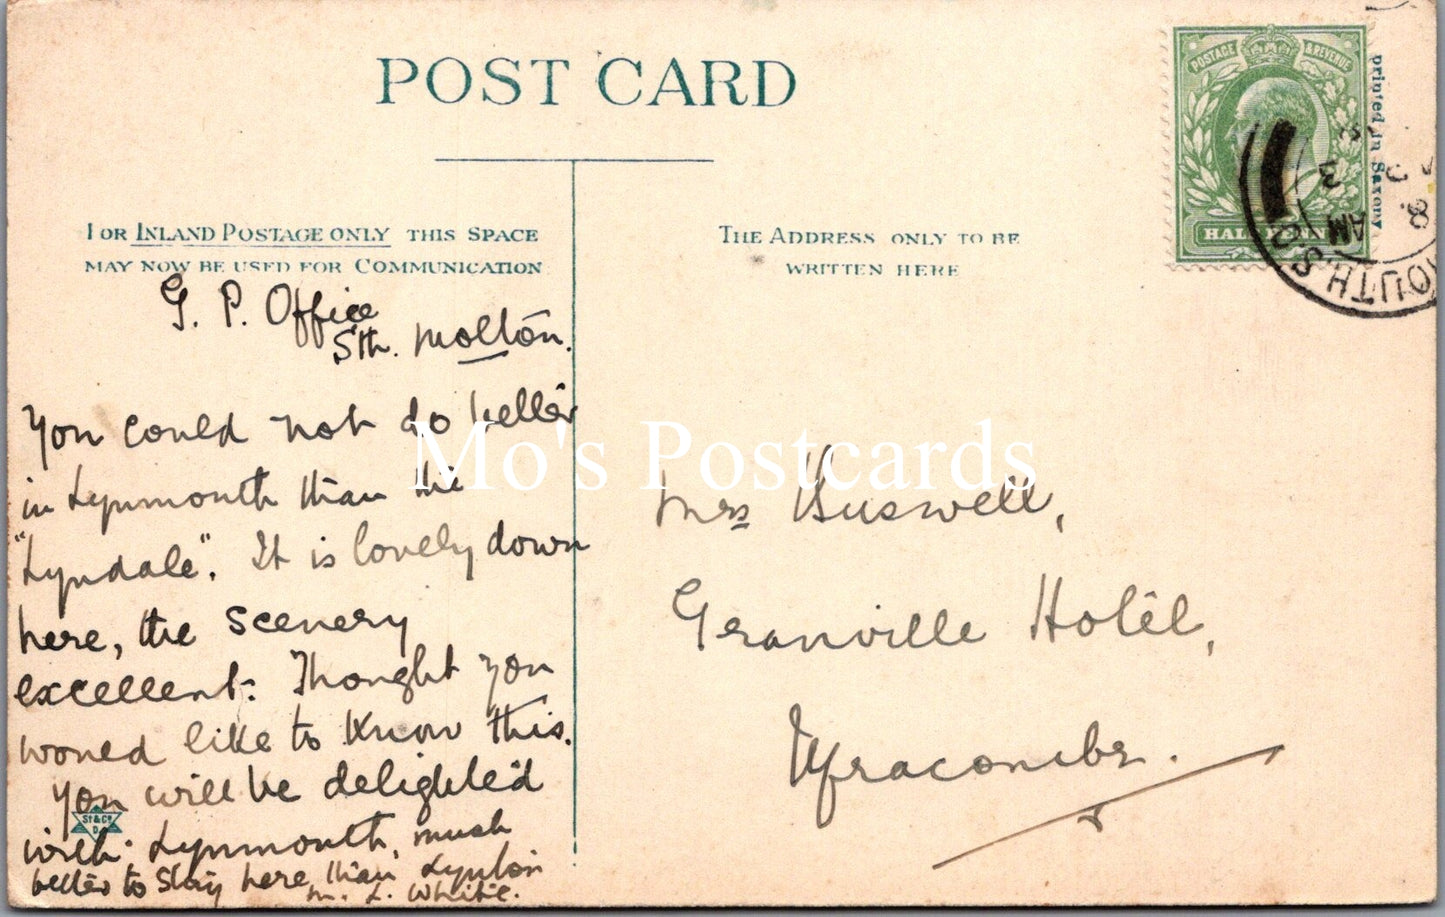 POST CARD
FOR INLAND POSTAGE ONLY THIS SPACE
MAY NOW BE USED FOR COMMUNICATION
THE ADDRESS ONLY TO BE
WRITTEN HERE
POSTAGE & REVENUE
HALF PENNY
printed in Saxony
OUTH S.O
AM
G. P. Office
Sth. Molton.
You could not do better
in Lynmouth than the
"Lyndale". It is lovely down
here, the scenery
excellent. Thought you
would like to know this.
You will be delighted
with Lynmouth, much
better to stay here than Lynton
M. L. White.
St & Co
D
Mrs Buswell,
Granville Hotel,
Ilfracombe.
Mo's Postcards